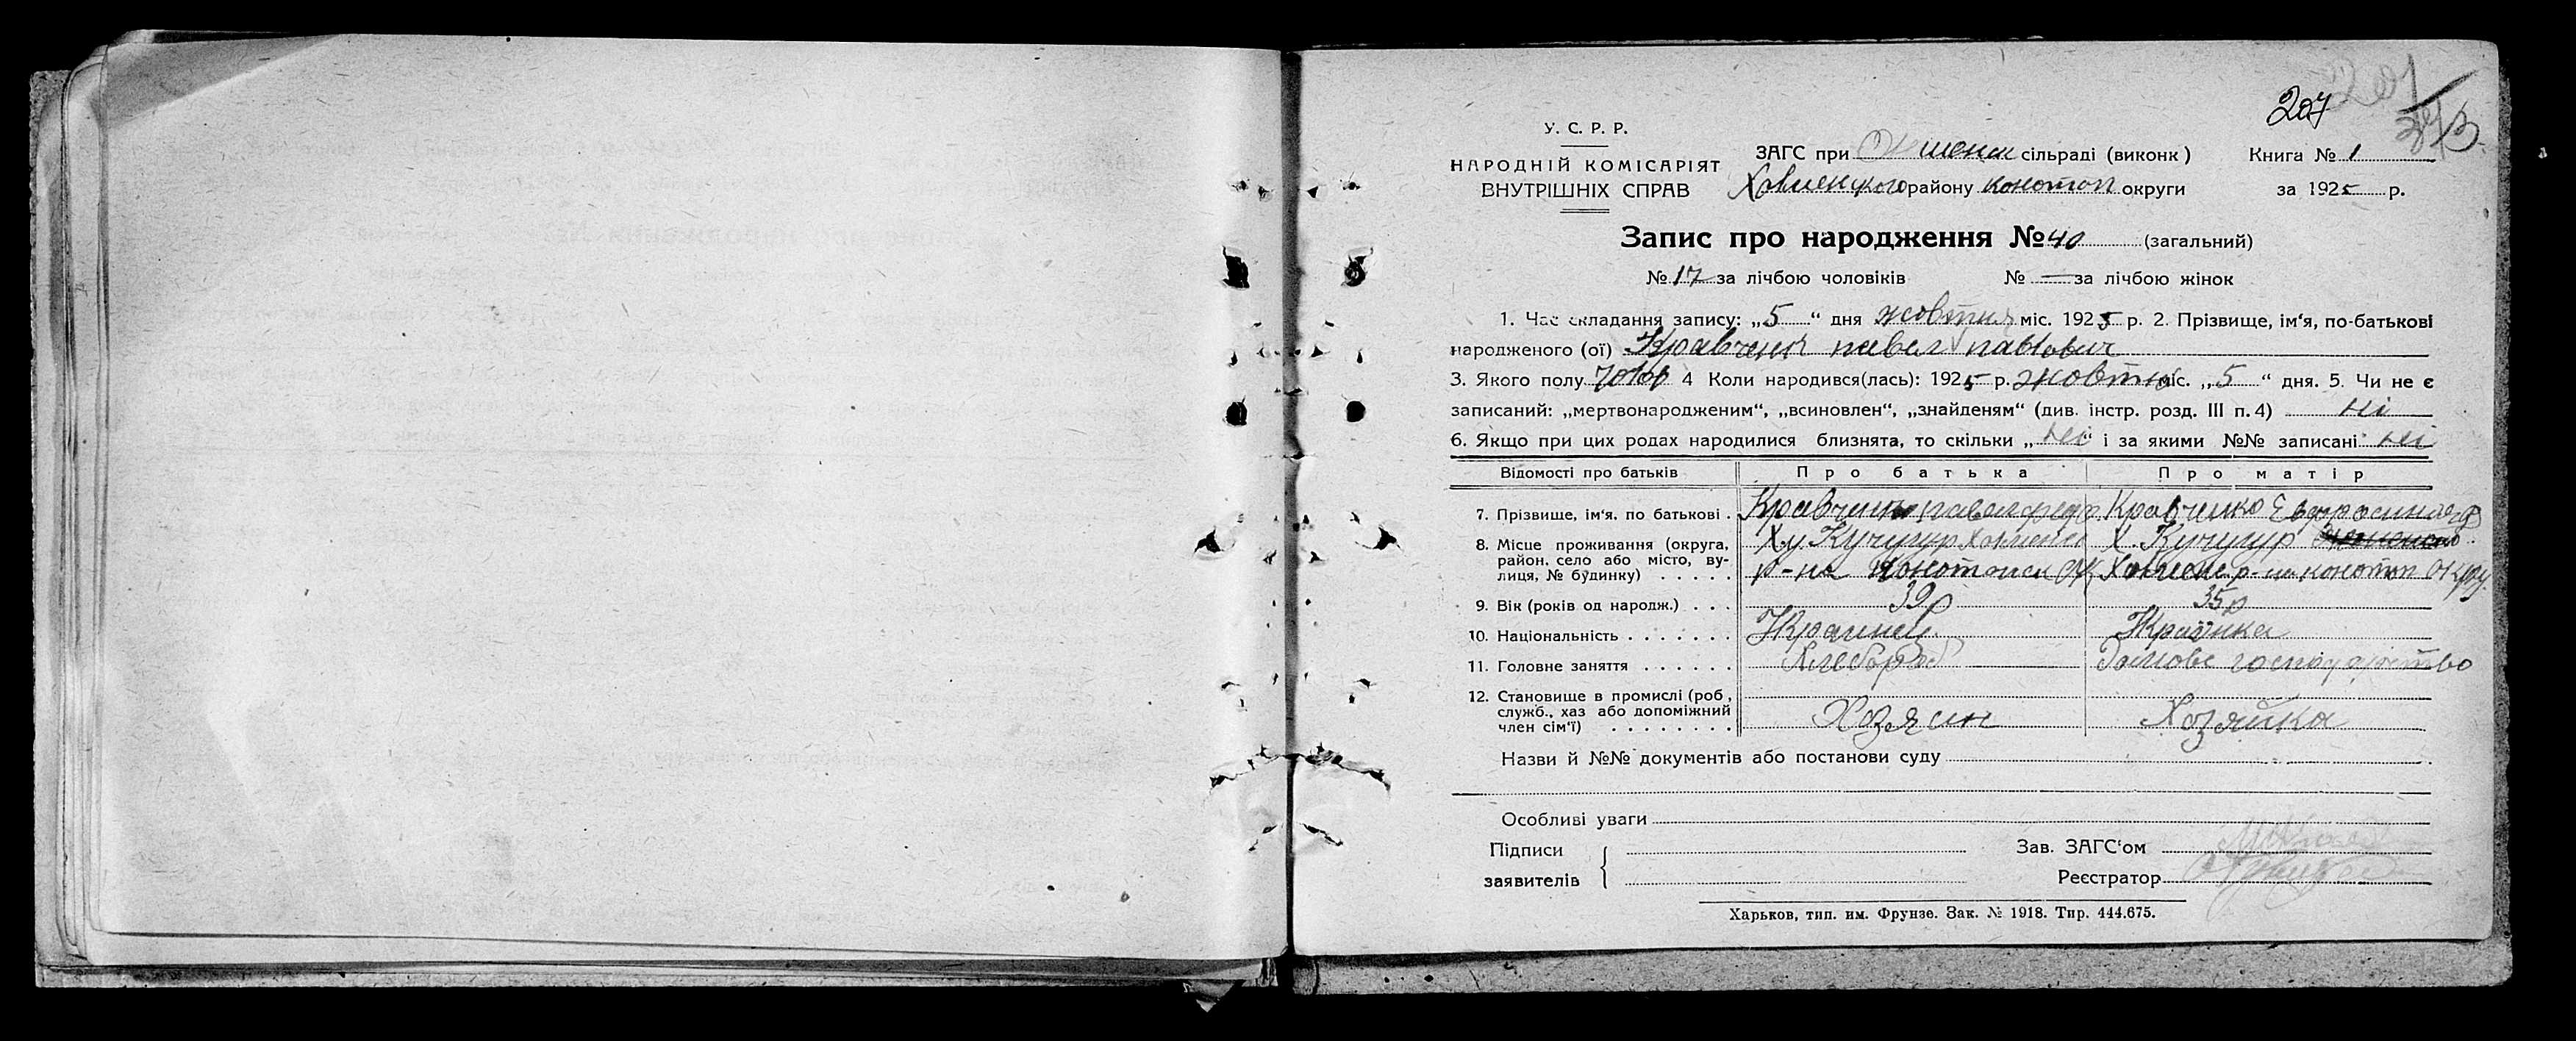 207
У. С. Р. Р.
НАРОДНІЙ КОМІСАРІЯТ
ВНУТРІШНІХ СПРАВ
ЗАГС при сільраді (виконк)
Книга № 1
району конотоп округи
за 1925 р.
Запис про народження № 40 (загальний)
№ 17 за лічбою чоловіків № — за лічбою жінок
1. Час складання запису: „5“ дня жовтня міс. 1925 р. 2. Прізвище, ім'я, по-батькові
народженого (ої) павел павлович
3. Якого полу чолов 4 Коли народився(лась): 1925 р. жовтня міс. „5“ дня. 5. Чи не є
записаний: „мертвонародженим“, „всиновлен“, „знайденям“ (див. інстр. розд. III п. 4) ні
6. Якщо при цих родах народилися близнята, то скільки „ні“ і за якими №№ записані ні
Відомості про батьків Про батька Про матір
7. Прізвище, ім'я, по батькові . Кравченко павел Кравченко
8. Місце проживання (округа, район, село або місто, вулиця, № будинку) . . . . .
Ху. Кучугур Х. Кучугур
р-на р-на конотоп округ
9. Вік (років од народж.) . . . 39 р 35 р
10. Національність . . . . . . . Українец Українка
11. Головне заняття . . . . . . Хлебороб господарство
12. Становище в промислі (роб., служб., хаз або допоміжний член сім'ї) . . . . . . . .
Хозяин Хозяйка
Назви й №№ документів або постанови суду
Особливі уваги
Підписи
заявителів
Зав. ЗАГС'ом
Реєстратор
Харьков, тип. им. Фрунзе. Зак. № 1918. Тир. 444.675.